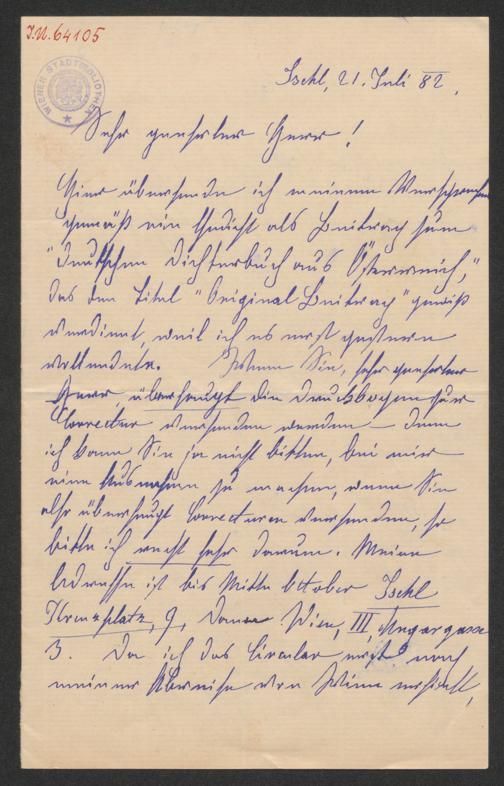 I.N. 64105
WIENER STADTBIBLIOTHEK
Ischl, 21. Juli 82.
Sehr geehrter Herr!
Hier übersende ich meinem Versprechen
gemäß ein Gedicht als Beitrag zum
"Deutschen Dichterbuch aus Österreich,"
das den Titel "Original Beitrag" gewiß
verdient, weil ich es erst gestern
vollendete. Wenn Sie, sehr geehrter
Herr, überhaupt die Druckbogen zur
Correctur versenden werden – denn
ich kann Sie ja nicht bitten, bei mir
eine Ausnahme zu machen, wenn Sie
also überhaupt Correcturen versenden, so
bitte ich recht sehr darum. Meine
Adresse ist bis Mitte October Ischl
Kreuzplatz, 9, dann Wien, III, Ungargasse
3. Da ich das Circular erst nach
meiner Abreise von Wien erhielt,